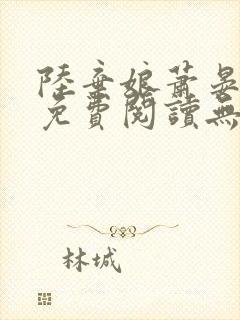 陸棄娘蕭晏
免費閱讀無
林城